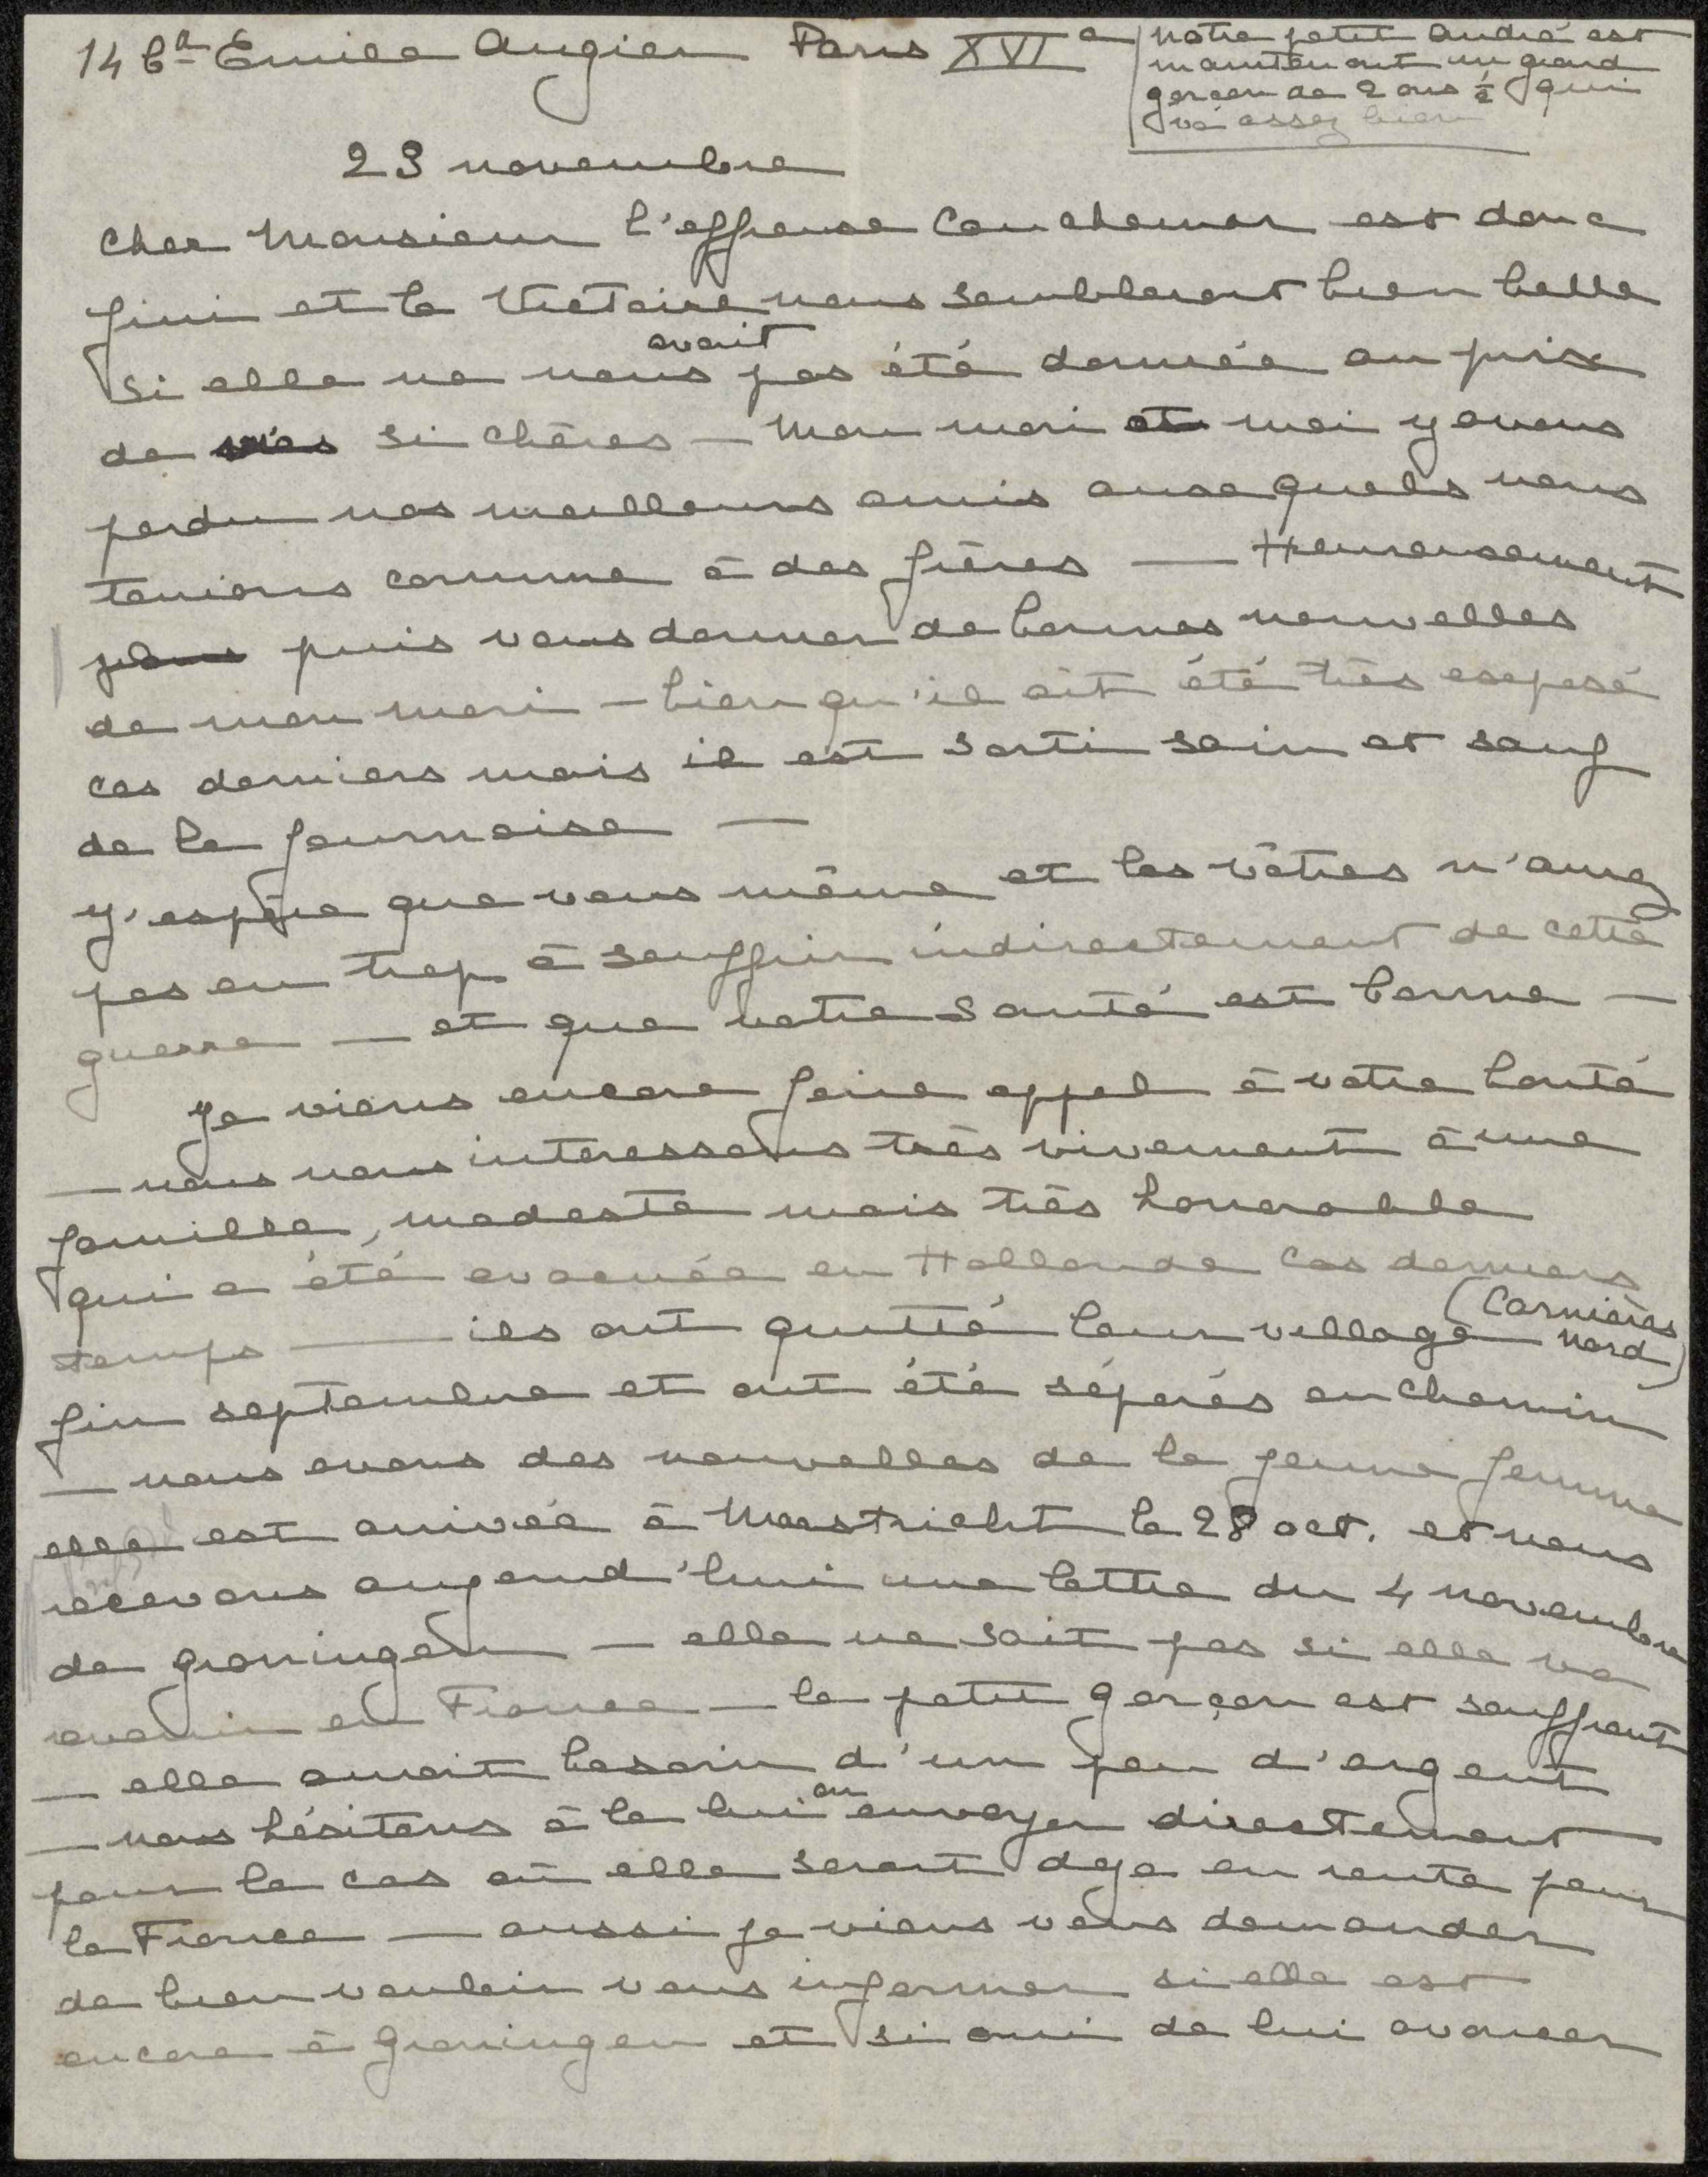 14 bd Emile Augier Paris XVIe
notre petit André est
maintenant un grand
garçon de 2 ans ½ qui
va assez bien
23 novembre
Cher Monsieur l'affreux cauchemar est donc
fini et la Victoire nous semblerait bien belle
si elle ne nous avait pas été donnée au prix
de vies si chères — Mon mari et moi y avons
perdu nos meilleurs amis auxquels nous
tenions comme à des frères — Heureusement
je puis vous donner de bonnes nouvelles
de mon mari — bien qu'il ait été très exposé
ces derniers mois il est sorti sain et sauf
de la fournaise —
J'espère que vous même et les vôtres n'avez
pas eu trop à souffrir indirectement de cette
guerre — et que votre santé est bonne —
Je viens encore faire appel à votre bonté
— nous nous interessons très vivement à une
famille, modeste mais très honorable
qui a été evacuée en Hollande ces derniers
temps — ils ont quitté leur village (Carnières Nord)
fin septembre et ont été séparés en chemin
— nous avons des nouvelles de la jeune femme
elle est arrivée à Maestricht le 28 oct. et nous
recevons aujourd'hui une lettre du 4 novembre
de Groningen — elle ne sait pas si elle va
revenir en France — le petit garçon est souffrant
— elle aurait besoin d'un peu d'argent
— nous hésitons à le lui en envoyer directement
pour le cas où elle serait deja en route pour
la France — aussi je viens vous demander
de bien vouloir vous informer si elle est
encore à Groningen et si oui de lui avancer